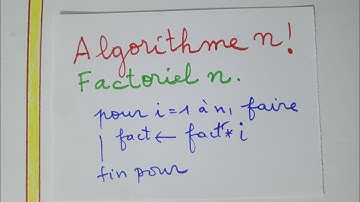 Algorithme n!
Factoriel n.
pour i=1 à n, faire
fact ← fact * i
fin pour